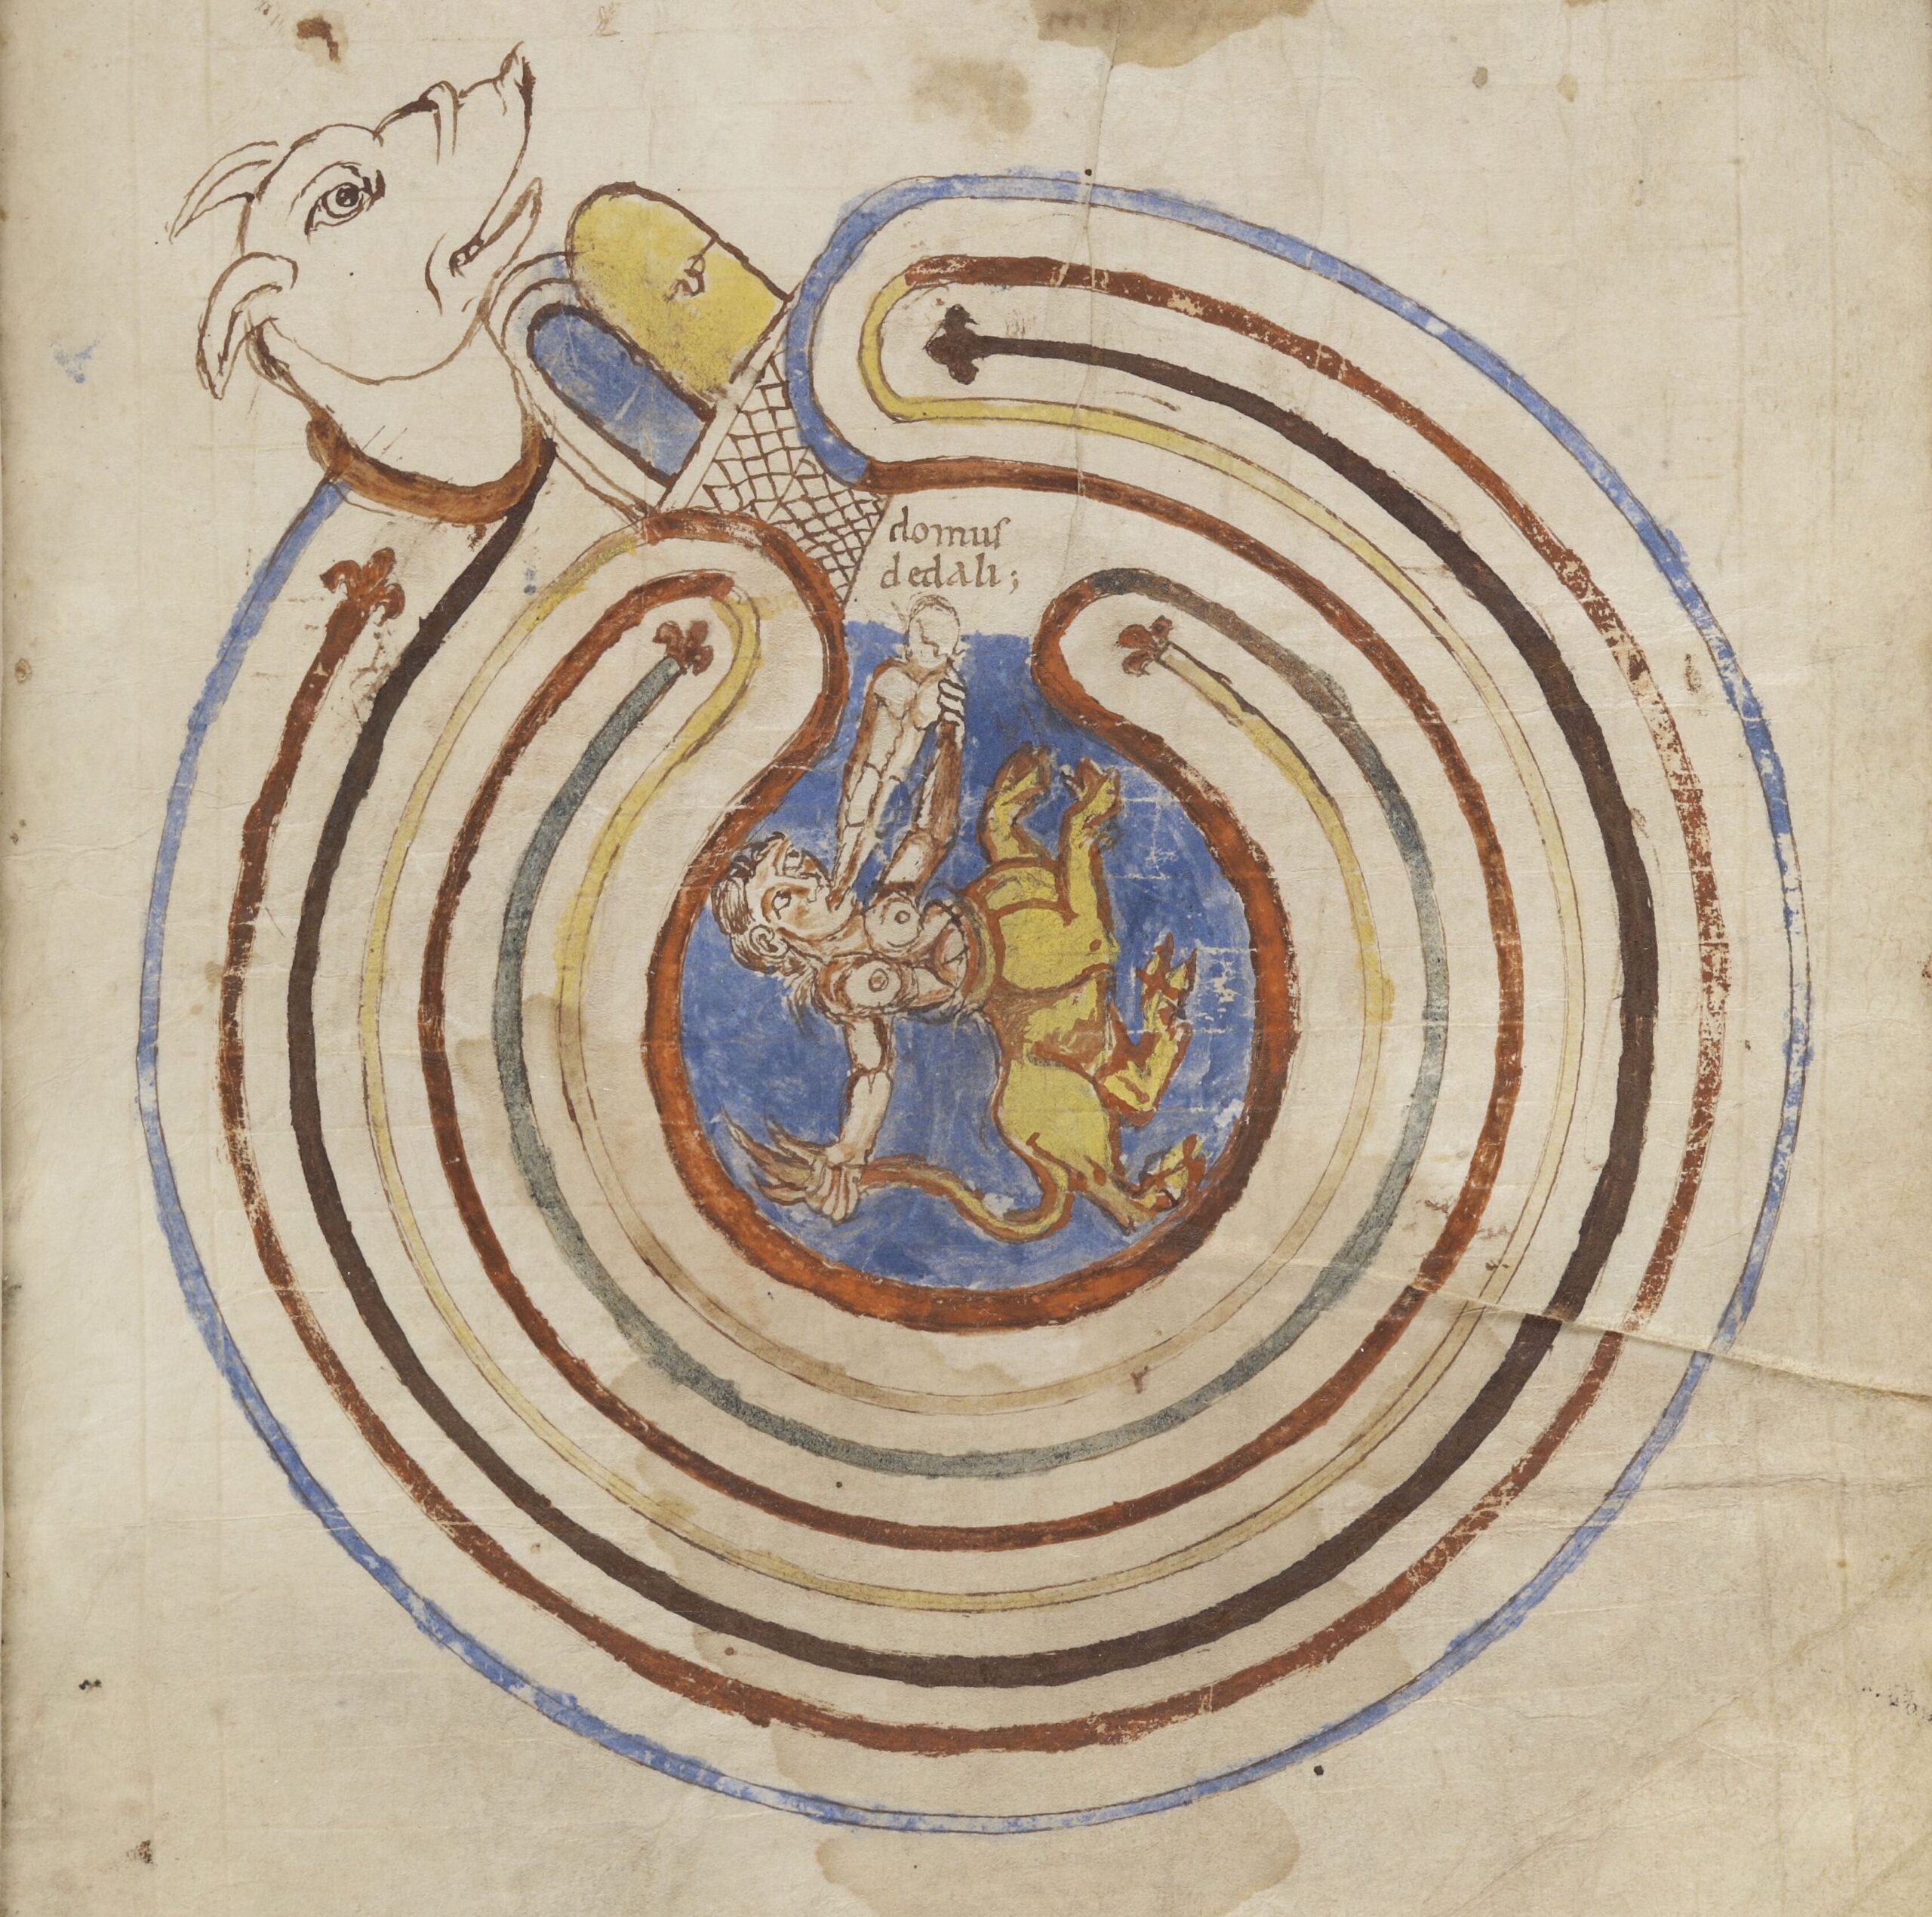 domus
dedali;